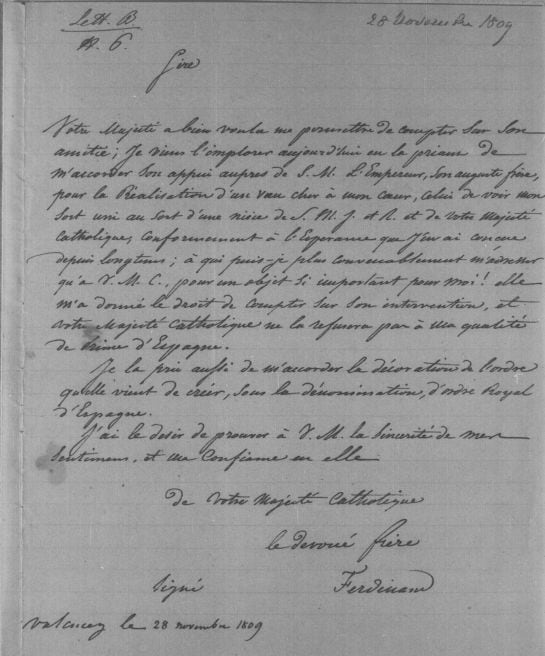 Lett. B
N. 6.
28 Novembre 1809
Sire
Votre Majesté a bien voulu me permettre de compter sur son
amitié; Je viens l'implorer aujourd'hui en la priant de
m'accorder son appui aupres de S. M. L'Empereur, son auguste frère,
pour la Réalisation d'un vœu cher à mon cœur, celui de voir mon
sort uni au sort d'une nièce de S. M. J. et R. et de votre Majesté
Catholique, conformement à l'Esperance que J'en ai concue
depuis longtems; à qui puis-je plus convenablement m'adresser
qu'a V. M. C., pour un objet si important pour moi! elle
m'a donné le droit de compter sur son intervention, et
votre Majesté Catholique ne la refusera pas à ma qualité
de Prince d'Espagne.
Je la prie aussi de m'accorder la décoration de l'ordre
qu'elle vient de créer, sous la dénomination, d'ordre Royal
d'Espagne.
J'ai le desir de prouver à V. M. la sincerité de mes
sentimens, et ma Confiance en elle
de Votre Majesté Catholique
le devoué frère
signé Ferdinand
Valencey le 28 novembre 1809